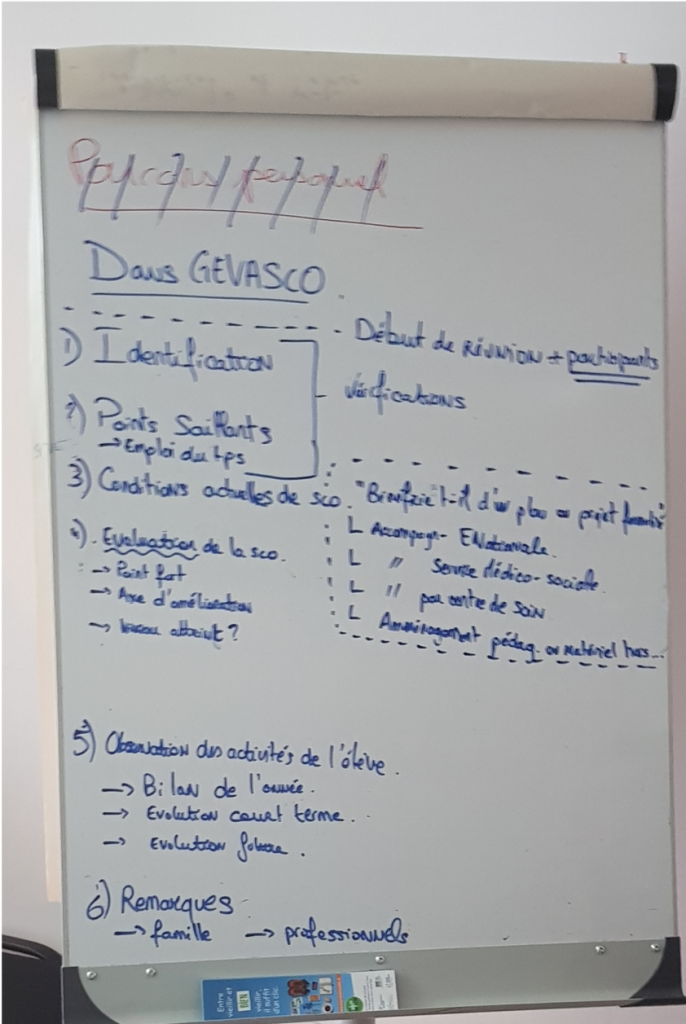 Parcours personnel
Dans GEVASCO.
Début de RÉUNION + participants
1) Identification
vérifications
2) Points Saillants
→ Emploi du tps
3) Conditions actuelles de sco.
"Bénéficie t-il d'un plan ou projet formalisé"
L Accompagn- ENationale.
L " Service Médico-sociale.
L " par centre de soin
L Amménagement pédag. ou matériel hors...
4). Evaluation de la sco.
→ Point fort
→ Axe d'amélioration
→ Niveau atteint ?
5) Observation des activités de l'élève.
→ Bilan de l'année.
→ Evolution court terme.
→ Evolution future.
6) Remarques
→ famille → professionnels
Entre
vieillir et
BIEN
vieillir,
il suffit
d'un clic.